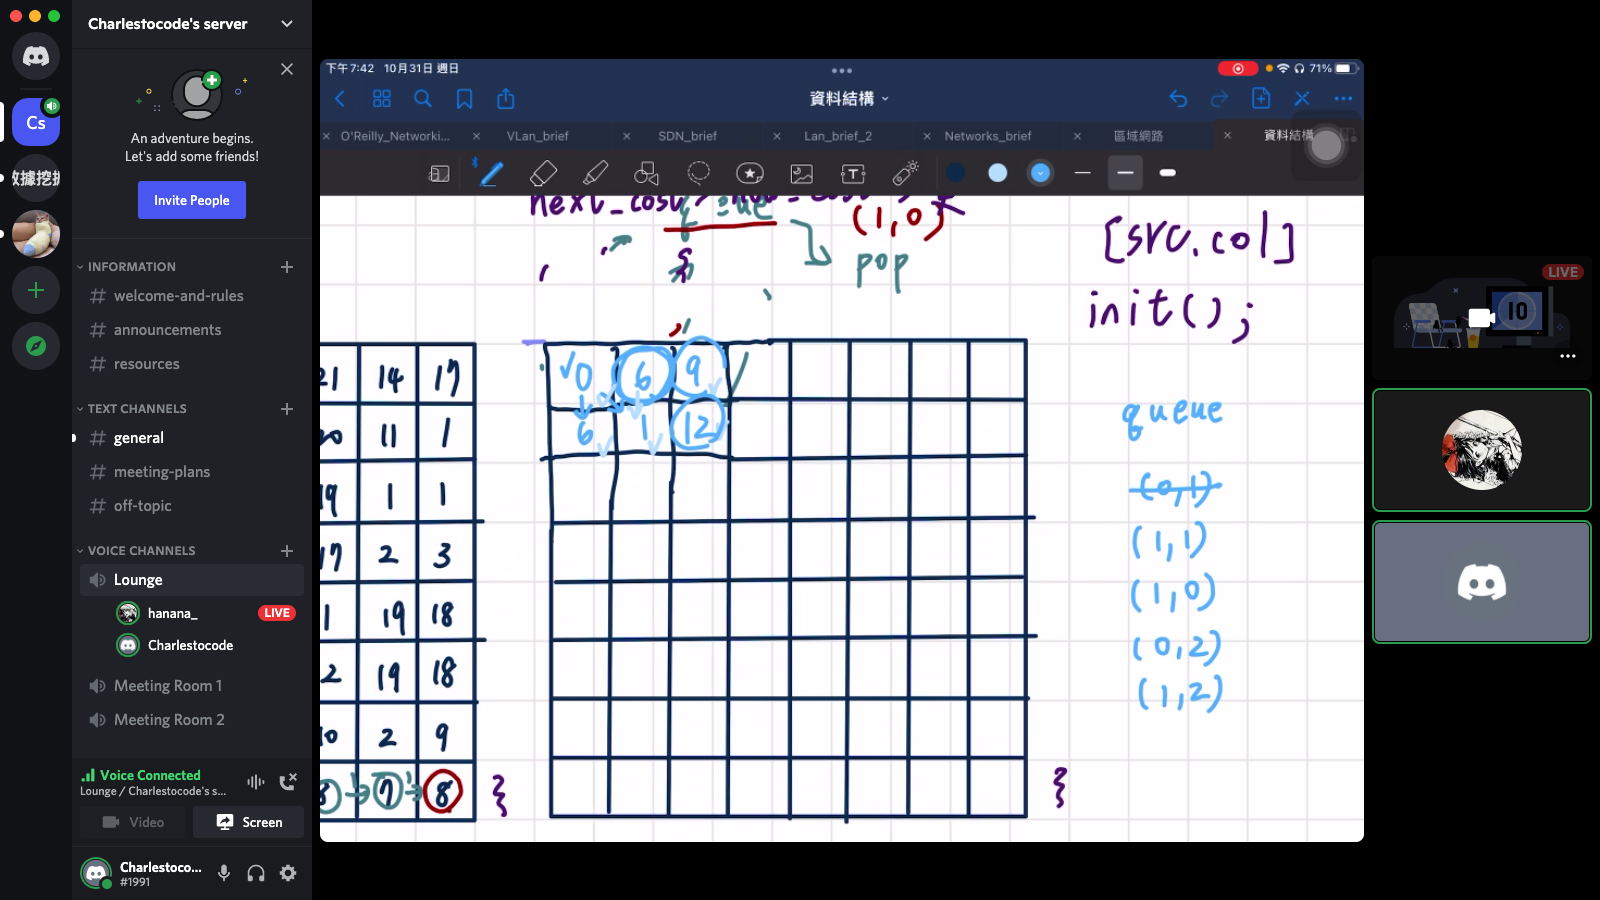 Charlestocode's server
Cs
An adventure begins.
Let's add some friends!
Invite People
INFORMATION
welcome-and-rules
announcements
resources
TEXT CHANNELS
general
meeting-plans
off-topic
VOICE CHANNELS
Lounge
hanana_
LIVE
Charlestocode
Meeting Room 1
Meeting Room 2
Voice Connected
Lounge / Charlestocode's s...
Video
Screen
Charlestoco...
#1991
下午7:42 10月31日 週日
71%
資料結構
O'Reilly_Networki...
VLan_brief
SDN_brief
Lan_brief_2
Networks_brief
區域網路
資料結構
(1,0)
pop
[src.col]
init();
21 14 17
11 1
19 1 1
17 2 3
1 19 18
2 19 18
10 2 9
8 7 8
}
0 6 9
6 1 12
}
queue
(0,1)
(1,1)
(1,0)
(0,2)
(1,2)
LIVE
10